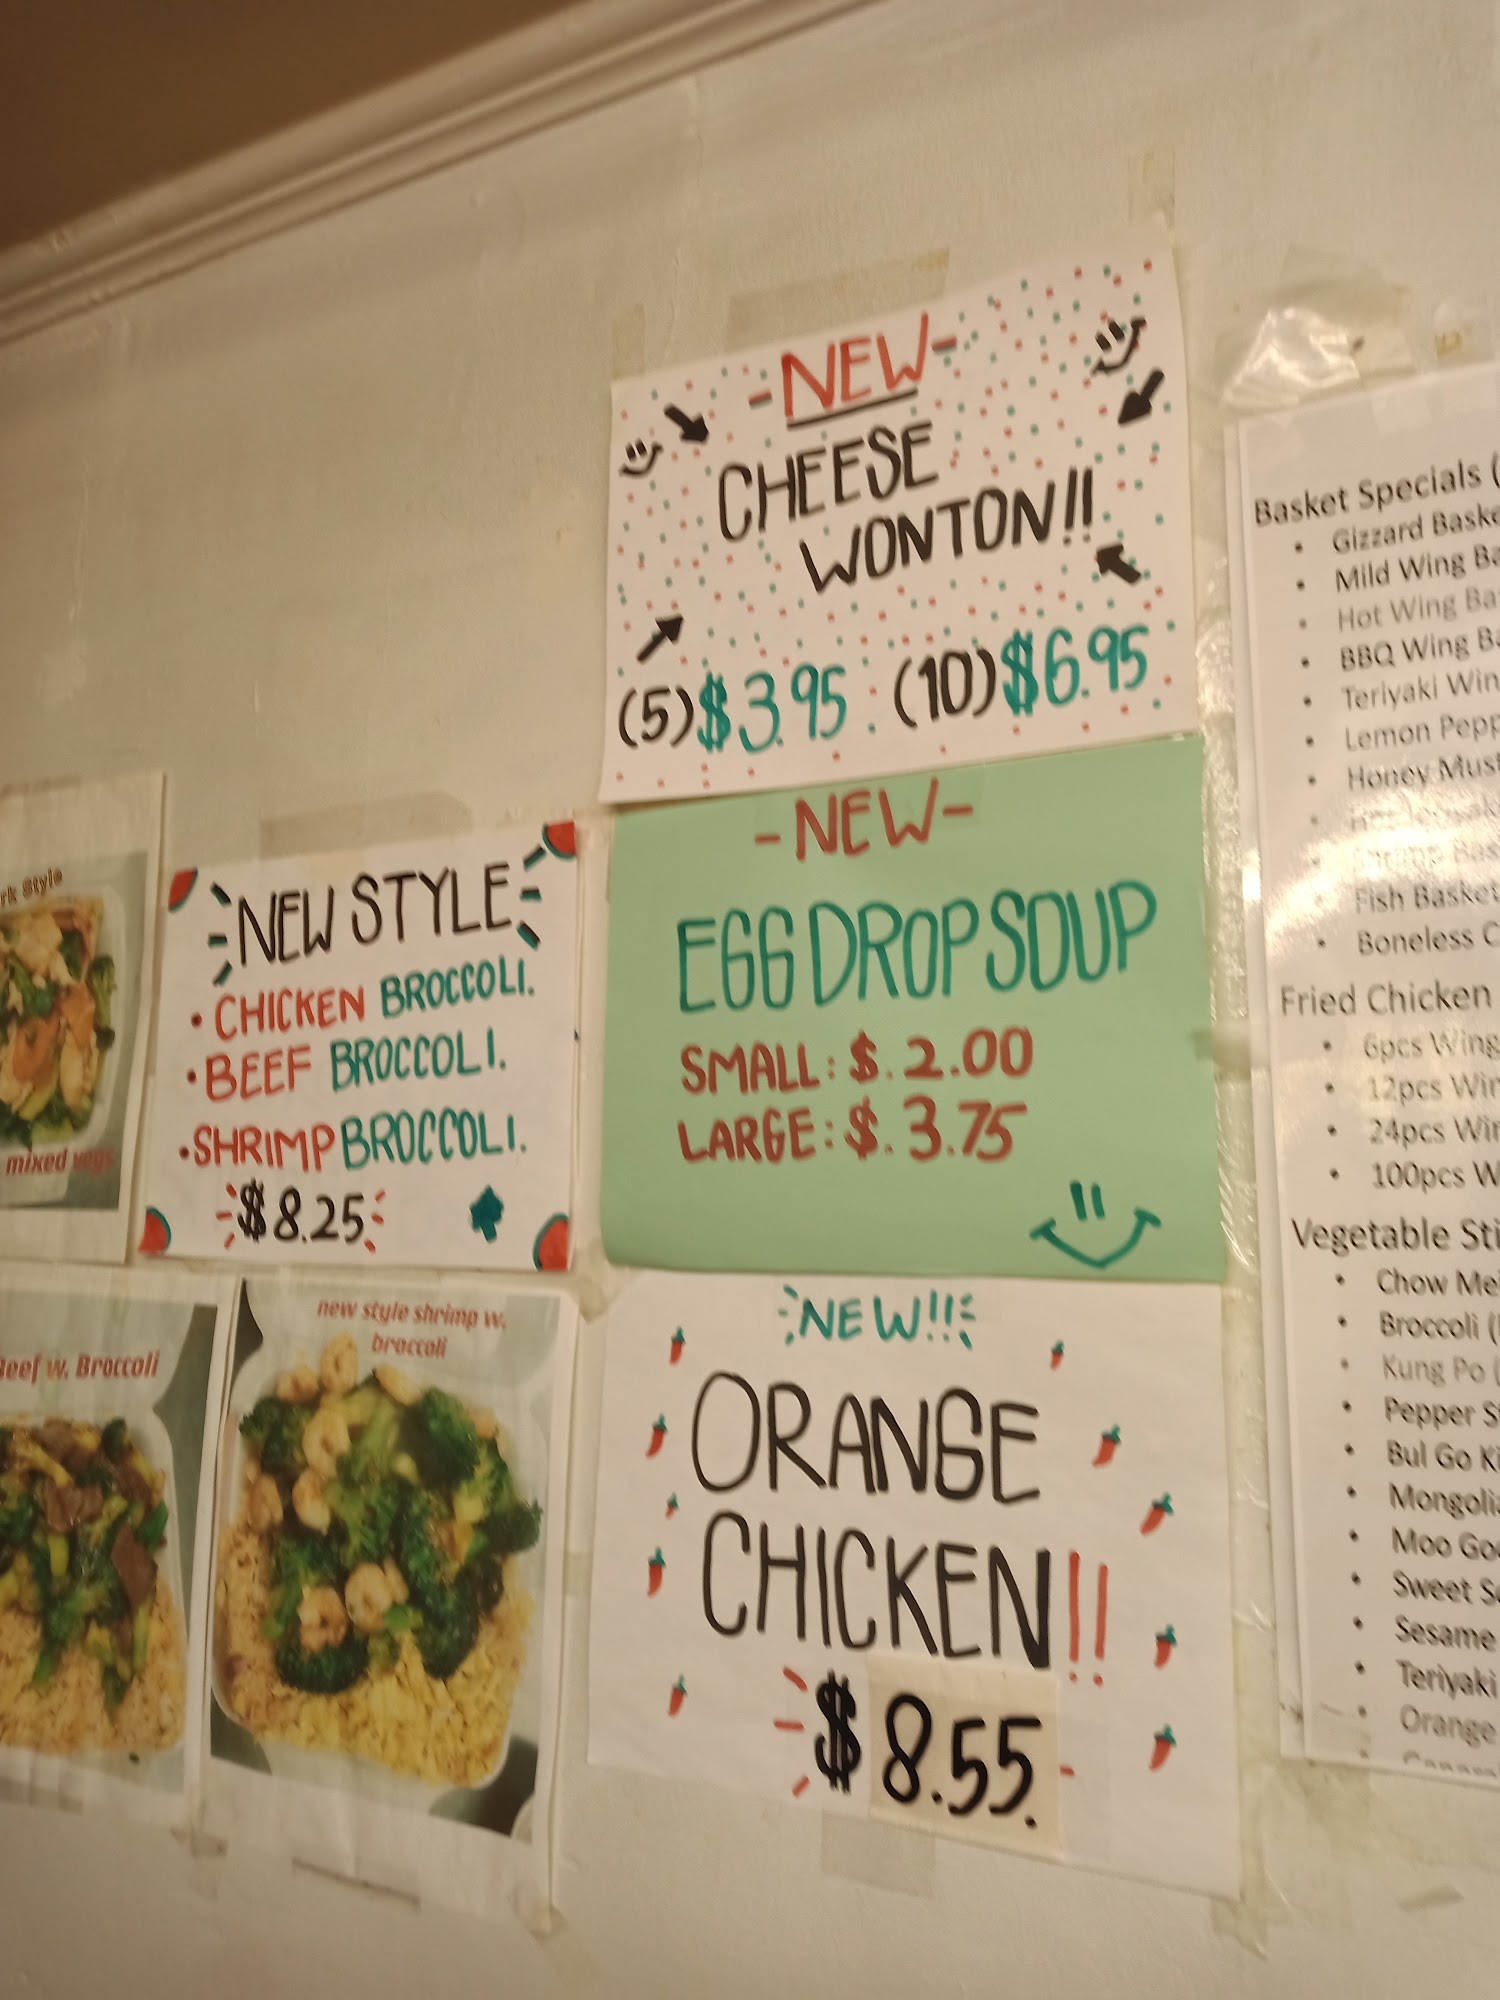 -NEW-
CHEESE
WONTON!!
(5) $3.95 (10) $6.95
-NEW-
EGG DROP SOUP
SMALL: $.2.00
LARGE: $.3.75
NEW!!
ORANGE
CHICKEN!!
$8.55.
NEW STYLE
• CHICKEN BROCCOLI.
• BEEF BROCCOLI.
• SHRIMP BROCCOLI.
$8.25
Style
mixed vegs
Beef w. Broccoli
new style shrimp w.
broccoli
Basket Specials (
• Gizzard
• Mild Wing
• Hot Wing
• BBQ Wing
• Teriyaki
• Lemon
• Honey
• Fish
• Boneless
Fried Chicken
• 6pcs
• 12pcs
• 24pcs
• 100pcs
Vegetable
• Chow
• Broccoli (
• Kung Po (
• Pepper
• Bul Go
• Moo
• Sweet
• Sesame
• Teriyaki
• Orange